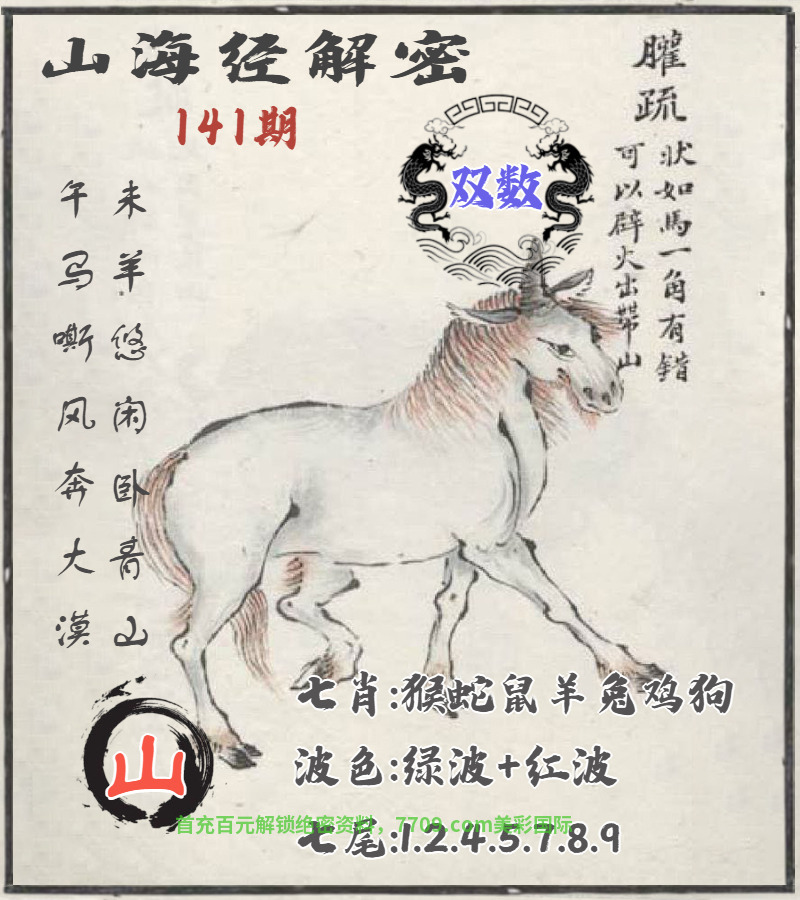 山海经解密
141期
双数
䑏疏
状如馬一角有錯
可以辟火出带山
未羊悠闲卧青山
午马嘶风奔大漠
山
七肖:猴蛇鼠羊兔鸡狗
波色:绿波+红波
首充百元解锁绝密资料，7709.com美彩国际
七尾:1.2.4.5.7.8.9